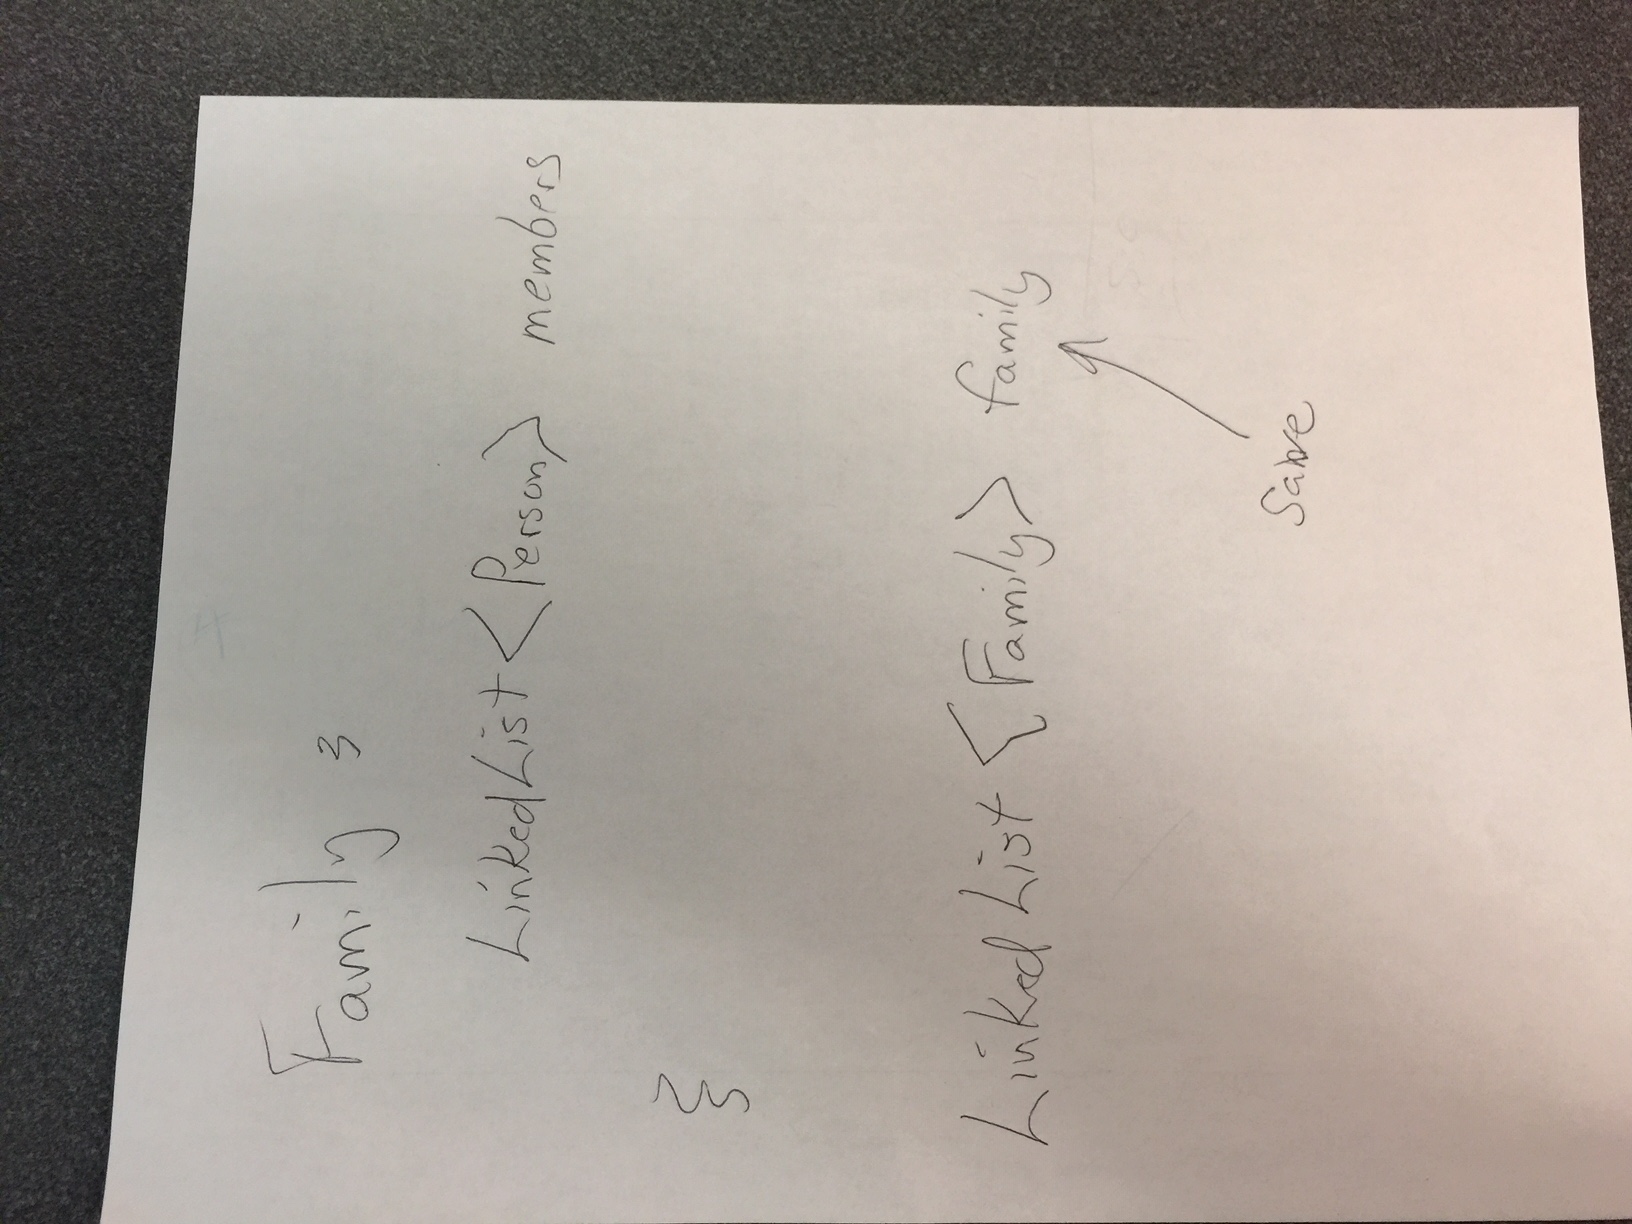 Family {
LinkedList<Person> members
}
LinkedList <Family> family
Save